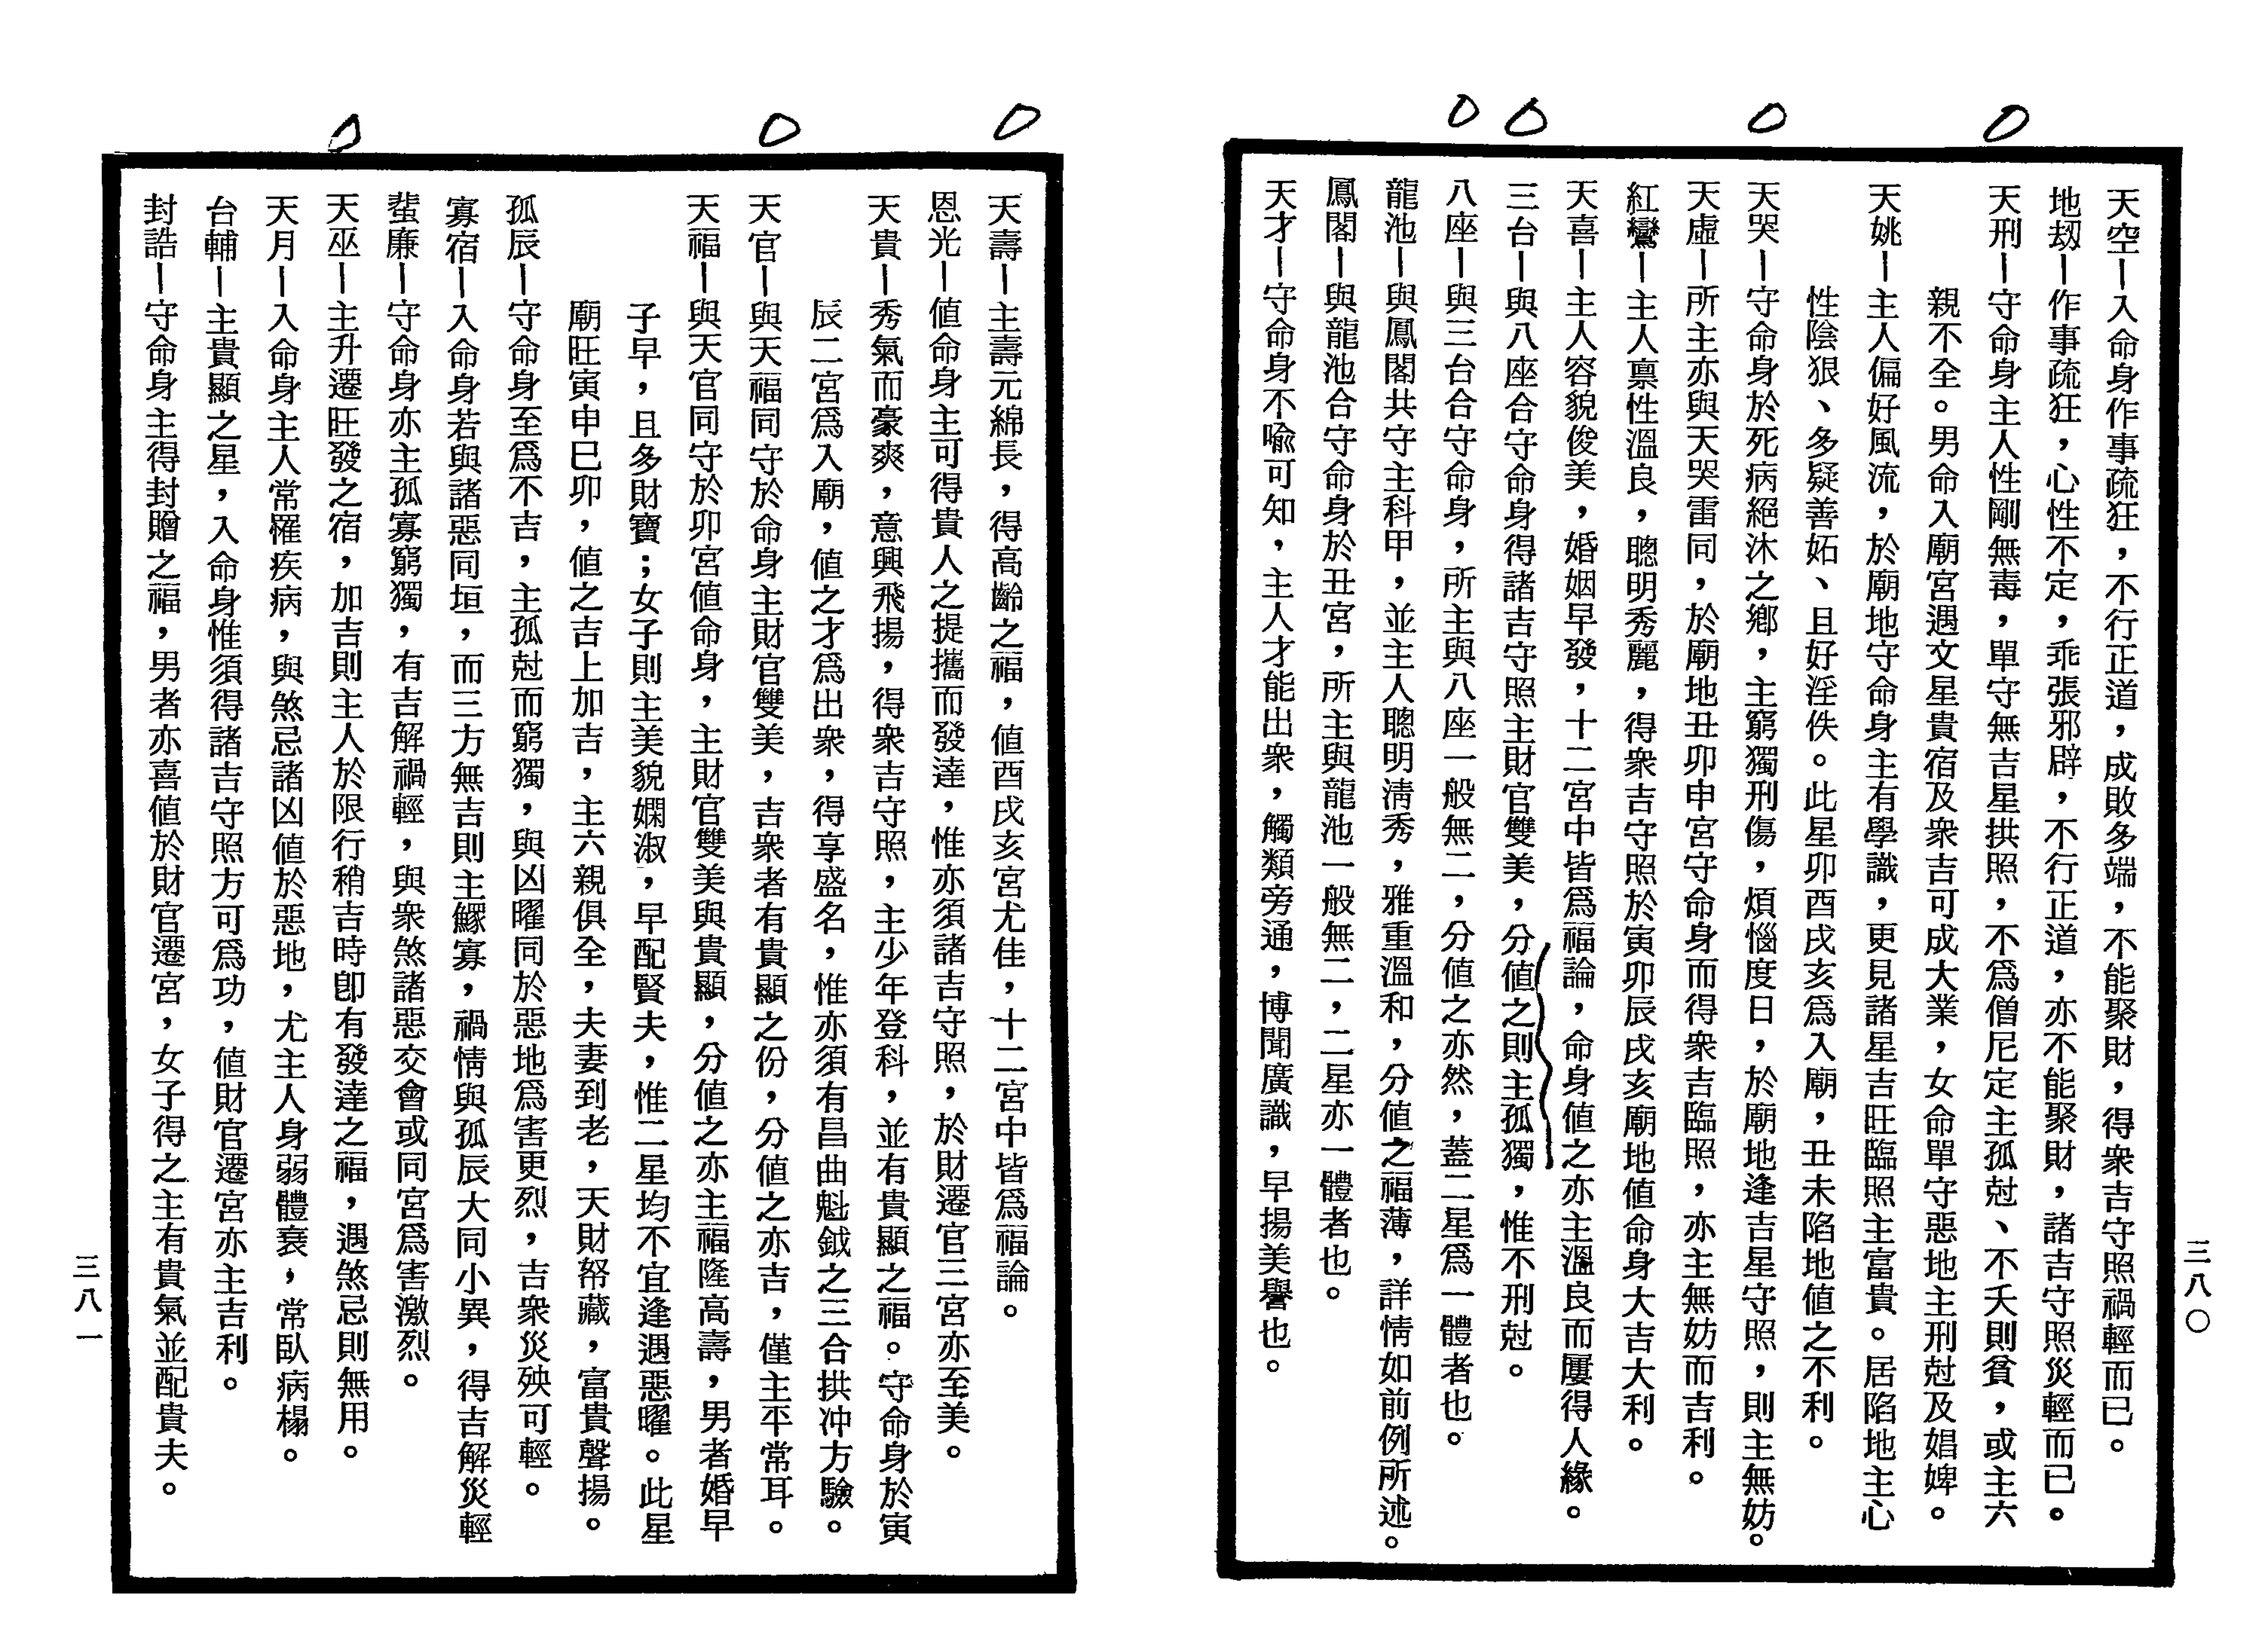 天空—入命身作事疏狂，不行正道，成敗多端，不能聚財，得衆吉守照禍輕而已。
地刼—作事疏狂，心性不定，乖張邪辟，不行正道，亦不能聚財，諸吉守照災輕而已。
天刑—守命身主人性剛無毒，單守無吉星拱照，不爲僧尼定主孤尅、不夭則貧，或主六
親不全。男命入廟宮遇文星貴宿及衆吉可成大業，女命單守惡地主刑尅及娼婢。
天姚—主人偏好風流，於廟地守命身主有學識，更見諸星吉旺臨照主富貴。居陷地主心
性陰狠、多疑善妬、且好淫佚。此星卯酉戌亥爲入廟，丑未陷地値之不利。
天哭—守命身於死病絕沐之鄉，主窮獨刑傷，煩惱度日，於廟地逢吉星守照，則主無妨。
天虛—所主亦與天哭雷同，於廟地丑卯申宮守命身而得衆吉臨照，亦主無妨而吉利。
紅鸞—主人禀性溫良，聰明秀麗，得衆吉守照於寅卯辰戌亥廟地値命身大吉大利。
天喜—主人容貌俊美，婚姻早發，十二宮中皆爲福論，命身値之亦主溫良而屢得人緣。
三台—與八座合守命身得諸吉守照主財官雙美，分値之則主孤獨，惟不刑尅。
八座—與三台合守命身，所主與八座一般無二，分値之亦然，蓋二星爲一體者也。
龍池—與鳳閣共守主科甲，並主人聰明清秀，雅重溫和，分値之福薄，詳情如前例所述。
鳳閣—與龍池合守命身於丑宮，所主與龍池一般無二，二星亦一體者也。
天才—守命身不喩可知，主人才能出衆，觸類旁通，博聞廣識，早揚美譽也。
三八〇
天壽—主壽元綿長，得高齡之福，値酉戌亥宮尤佳，十二宮中皆爲福論。
恩光—値命身主可得貴人之提攜而發達，惟亦須諸吉守照，於財遷官三宮亦至美。
天貴—秀氣而豪爽，意興飛揚，得衆吉守照，主少年登科，並有貴顯之福。守命身於寅
辰二宮爲入廟，値之才爲出衆，得享盛名，惟亦須有昌曲魁鉞之三合拱冲方驗。
天官—與天福同守於命身主財官雙美，吉衆者有貴顯之份，分値之亦吉，僅主平常耳。
天福—與天官同守於卯宮値命身，主財官雙美與貴顯，分値之亦主福隆高壽，男者婚早
子早，且多財寶；女子則主美貌嫻淑，早配賢夫，惟二星均不宜逢遇惡曜。此星
廟旺寅申巳卯，値之吉上加吉，主六親俱全，夫妻到老，天財帑藏，富貴聲揚。
孤辰—守命身至爲不吉，主孤尅而窮獨，與凶曜同於惡地爲害更烈，吉衆災殃可輕。
寡宿—入命身若與諸惡同垣，而三方無吉則主鰥寡，禍情與孤辰大同小異，得吉解災輕
蜚廉—守命身亦主孤寡窮獨，有吉解禍輕，與衆煞諸惡交會或同宮爲害激烈。
天巫—主升遷旺發之宿，加吉則主人於限行稍吉時卽有發達之福，遇煞忌則無用。
天月—入命身主人常罹疾病，與煞忌諸凶値於惡地，尤主人身弱體衰，常臥病榻。
台輔—主貴顯之星，入命身惟須得諸吉守照方可爲功，値財官遷宮亦主吉利。
封誥—守命身主得封贈之福，男者亦喜値於財官遷宮，女子得之主有貴氣並配貴夫。
三八一